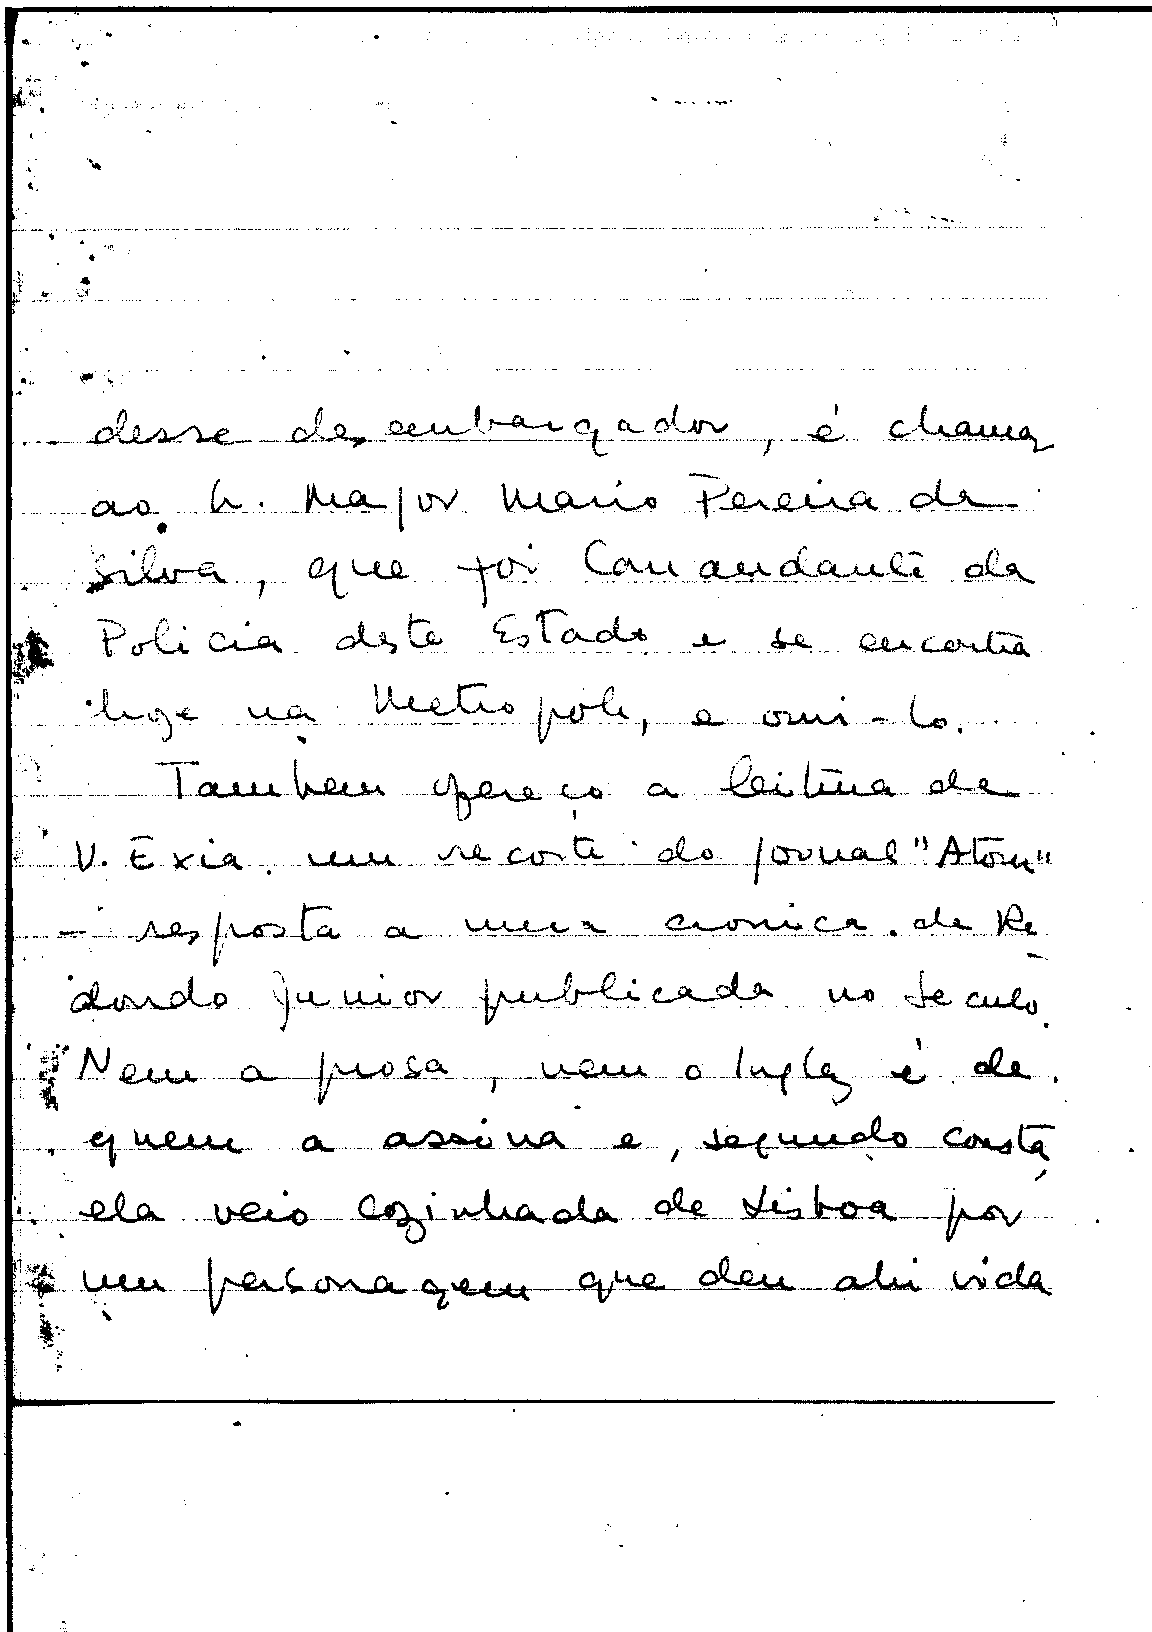 desse desembargador, é chamar
ao Sr. Major Mario Pereira da
Silva, que foi Comandante da
Policia deste Estado e se encontra
hoje na Metropole, e ouvi-lo.
Tambem ofereço a leitura de
V. Exia. um recorte do jornal "Atom"
— resposta a uma cronica de Re-
dondo Junior publicada no Seculo.
Nem a prosa, nem o Inglez é de
quem a assina e, segundo consta,
ela veio cozinhada de Lisboa por
um personagem que deu ahi vida